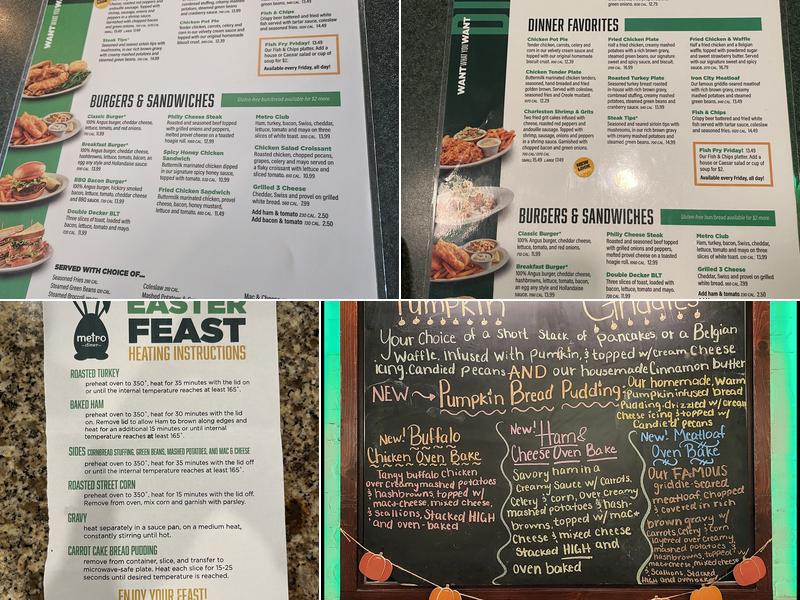 lettuce, tomato and mayo.
Steak Tips*
Seasoned and seared sirloin tips with
mushrooms, in our rich brown gravy
with creamy mashed potatoes and
steamed green beans.
Chicken Pot Pie
Tender chicken, carrots, celery and
corn in our velvet cream sauce and
topped with our original homemade
biscuit crust.
cranberry sauce.
Fish & Chips
Crispy beer battered and fried white
fish served with tartar sauce, coleslaw
and seasoned fries.
Fish Fry Friday! 13.49
Our Fish & Chips platter. Add a
house or Caesar salad or cup of
soup for $2.
Available every Friday, all day!
WANT WHAT YOU WANT
BURGERS & SANDWICHES
Gluten-free bun/bread available for $2 more.
Classic Burger*
100% Angus burger, cheddar cheese,
lettuce, tomato, and red onions.
Breakfast Burger*
100% Angus burger, cheddar cheese,
hashbrowns, lettuce, tomato, bacon,
an egg any style and Hollandaise
sauce.
BBQ Bacon Burger*
100% Angus burger, hickory smoked
bacon, lettuce, tomato, cheddar cheese
and BBQ sauce.
Double Decker BLT
Three slices of toast, loaded with
bacon, lettuce, tomato and mayo.
Philly Cheese Steak
Roasted and seasoned beef topped
with grilled onions and peppers,
melted provel cheese on a toasted
hoagie roll.
Spicy Honey Chicken
Sandwich
Buttermilk marinated chicken dipped
in our signature spicy honey sauce,
topped with tomato.
Fried Chicken Sandwich
Buttermilk marinated chicken, provel
cheese, bacon, honey mustard,
lettuce and tomato.
Metro Club
Ham, turkey, bacon, Swiss, cheddar,
lettuce, tomato and mayo on three
slices of white toast.
Chicken Salad Croissant
Roasted chicken, chopped pecans,
grapes, celery and mayo served on
a flaky croissant with lettuce and
sliced tomato.
Grilled 3 Cheese
Cheddar, Swiss and provel on grilled
white bread.
Add ham & tomato 2.50
Add bacon & tomato 2.50
SERVED WITH CHOICE OF...
Seasoned Fries
Steamed Green Beans
Steamed Broccoli
Coleslaw
Mashed Potatoes &
Mac & Cheese
WANT WHAT YOU WANT
DINNER FAVORITES
Chicken Pot Pie
Tender chicken, carrots, celery and
corn in our velvet cream sauce and
topped with our original homemade
biscuit crust.
Chicken Tender Plate
Buttermilk marinated chicken tenders,
seasoned, hand-breaded and fried
golden brown. Served with coleslaw,
seasoned fries and Creole mustard.
Charleston Shrimp & Grits
Two fried grit cakes infused with
cheese, roasted red peppers and
andouille sausage. Topped with
shrimp, sausage, onions and peppers
in a shrimp sauce. Garnished with
chopped bacon and green onions.
Fried Chicken Plate
Half a fried chicken, creamy mashed
potatoes with a rich brown gravy,
steamed green beans, our signature
sweet and spicy sauce, and biscuit.
Roasted Turkey Plate
Seasoned turkey breast roasted
in-house with rich brown gravy,
cornbread stuffing, creamy mashed
potatoes, steamed green beans and
cranberry sauce.
Steak Tips*
Seasoned and seared sirloin tips with
mushrooms, in our rich brown gravy
with creamy mashed potatoes and
steamed green beans.
Fried Chicken & Waffle
Half a fried chicken and a Belgian
waffle, topped with powdered sugar
and sweet strawberry butter. Served
with our signature sweet & spicy
sauce.
Iron City Meatloaf
Our famous griddle seared meatloaf
with rich brown gravy, creamy
mashed potatoes and steamed
green beans.
Fish & Chips
Crispy beer battered and fried white
fish served with tartar sauce, coleslaw
and seasoned fries.
Fish Fry Friday! 13.49
Our Fish & Chips platter. Add a
house or Caesar salad or cup of
soup for $2.
Available every Friday, all day!
BURGERS & SANDWICHES
Gluten-free bun/bread available for $2 more.
Classic Burger*
100% Angus burger, cheddar cheese,
lettuce, tomato, and red onions.
Breakfast Burger*
100% Angus burger, cheddar cheese,
hashbrowns, lettuce, tomato, bacon,
an egg any style and Hollandaise
sauce.
Philly Cheese Steak
Roasted and seasoned beef topped
with grilled onions and peppers,
melted provel cheese on a toasted
hoagie roll.
Double Decker BLT
Three slices of toast, loaded with
bacon, lettuce, tomato and mayo.
Metro Club
Ham, turkey, bacon, Swiss, cheddar,
lettuce, tomato and mayo on three
slices of white toast.
Grilled 3 Cheese
Cheddar, Swiss and provel on grilled
white bread.
Add ham & tomato 2.50
metro
diner
EASTER
FEAST
HEATING INSTRUCTIONS
ROASTED TURKEY
preheat oven to 350°, heat for 35 minutes with the lid on
or until the internal temperature reaches at least 165°.
BAKED HAM
preheat oven to 350°, heat for 30 minutes with the lid
on. Remove lid to allow Ham to brown along edges and
heat for an additional 15 minutes or until internal
temperature reaches at least 165°.
SIDES CORNBREAD STUFFING, GREEN BEANS, MASHED POTATOES, AND MAC & CHEESE
preheat oven to 350°, heat for 35 minutes with the lid off
or until the internal temperature reaches at least 165°.
ROASTED STREET CORN
preheat oven to 350°, heat for 15 minutes with the lid off.
Remove from oven, mix corn and garnish with parsley.
GRAVY
heat separately in a sauce pan, on a medium heat,
constantly stirring until hot.
CARROT CAKE BREAD PUDDING
remove from container, slice, and transfer to
microwave-safe plate. Heat each slice for 15-25
seconds until desired temperature is reached.
ENJOY YOUR FEAST!
Pumpkin Griddles
Your Choice of a Short Stack of Pancakes, or a Belgian
Waffle, infused with pumpkin, & topped w/cream cheese
icing, Candied pecans AND our housemade Cinnamon butter
NEW → Pumpkin Bread Pudding:
Our homemade, warm
Pumpkin infused bread
Pudding, drizzled w/ cream
Cheese icing & topped w/
Candied pecans
New! Buffalo
Chicken Oven Bake
Tangy buffalo chicken
over Creamy mashed potatoes
& hashbrowns, topped w/
mac + cheese, mixed cheese,
& Scallions, Stacked HIGH
and oven-baked
New! Ham &
Cheese Oven Bake
Savory ham in a
Creamy Sauce w/ Carrots,
Celery & corn, over Creamy
mashed potatoes & hash-
browns, topped w/ mac &
Cheese & mixed cheese
Stacked HIGH and
oven baked
New! Meatloaf
Oven Bake
Our FAMOUS
griddle-seared
meatloaf, chopped
& covered in rich
brown gravy w/
Carrots, Celery & corn
layered over Creamy
mashed potatoes &
hashbrowns, topped w/
mac + cheese, mixed cheese
& Scallions, Stacked
HIGH and oven baked